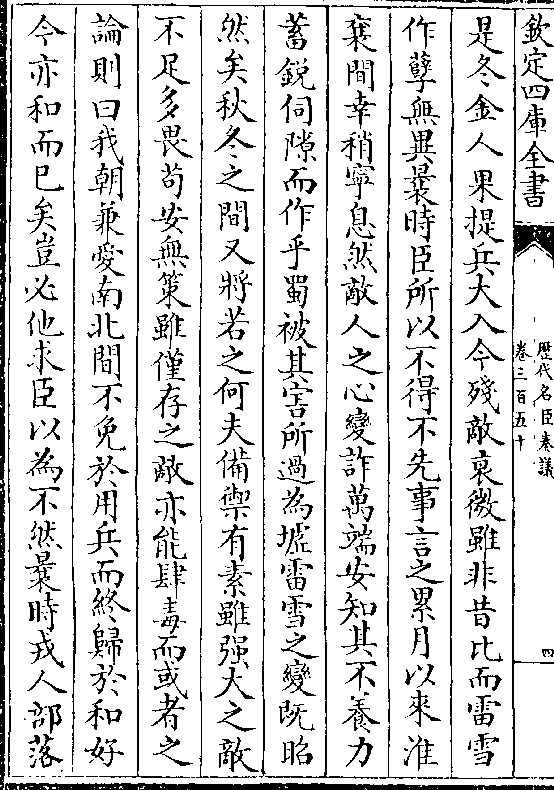 欽定四庫全書
歷代名臣奏議
卷三百五十
四
是冬金人果提兵大入今殘敵衰微雖非昔比而雷雪
作孽無異曩時臣所以不得不先事言之累月以來淮
襄間幸稍寧息然敵人之心變詐萬端安知其不養力
蓄銳伺隙而作乎蜀被其害所過為墟雷雪之變既昭
然矣秋冬之間又將若之何夫備禦有素雖强大之敵
不足多畏茍安無策雖僅存之敵亦能肆毒而或者之
論則曰我朝兼愛南北間不免於用兵而終歸於和好
今亦和而已矣豈必他求臣以為不然曩時戎人部落